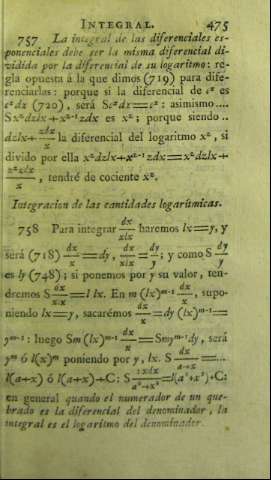 INTEGRAL. 475
757 La integral de las diferenciales es-
ponenciales debe ser la misma diferencial di-
vidida por la diferencial de su logaritmo: re-
gla opuesta á la que dimos (719) para dife-
renciarlas: porque si la diferencial de cˣ es
cˣdx (720), será Scˣdx=cˣ: asimismo....
Sxᶻdzlx+xᶻ⁻¹zdx es xᶻ; porque siendo ..
dzlx+zdx/x la diferencial del logaritmo xᶻ, si
divido por ella xᶻdzlx+xᶻ⁻¹zdx=xᶻdzlx+
xᶻzdx/x, tendré de cociente xᶻ.
Integracion de las cantidades logarítmicas.
758 Para integrar dx/xlx haremos lx=y, y
será (718) dx/x=dy, dx/xlx=dy/y; y como S dy/y
es ly (748); si ponemos por y su valor, ten-
dremos S dx/xlx=l lx. En m (lx)ᵐ⁻¹ dx/x, supo-
niendo lx=y, sacarémos dx/x=dy (lx)ᵐ⁻¹=
yᵐ⁻¹: luego Sm (lx)ᵐ⁻¹ dx/x=Smyᵐ⁻¹dy, será
yᵐ ó l(x)ᵐ poniendo por y, lx. S dx/a+x=...
l(a+x) ó l(a+x)+C: S 2xdx/a²+x²=l(a²+x²)+C:
en general quando el numerador de un que-
brado es la diferencial del denominador, la
integral es el logaritmo del denominador.